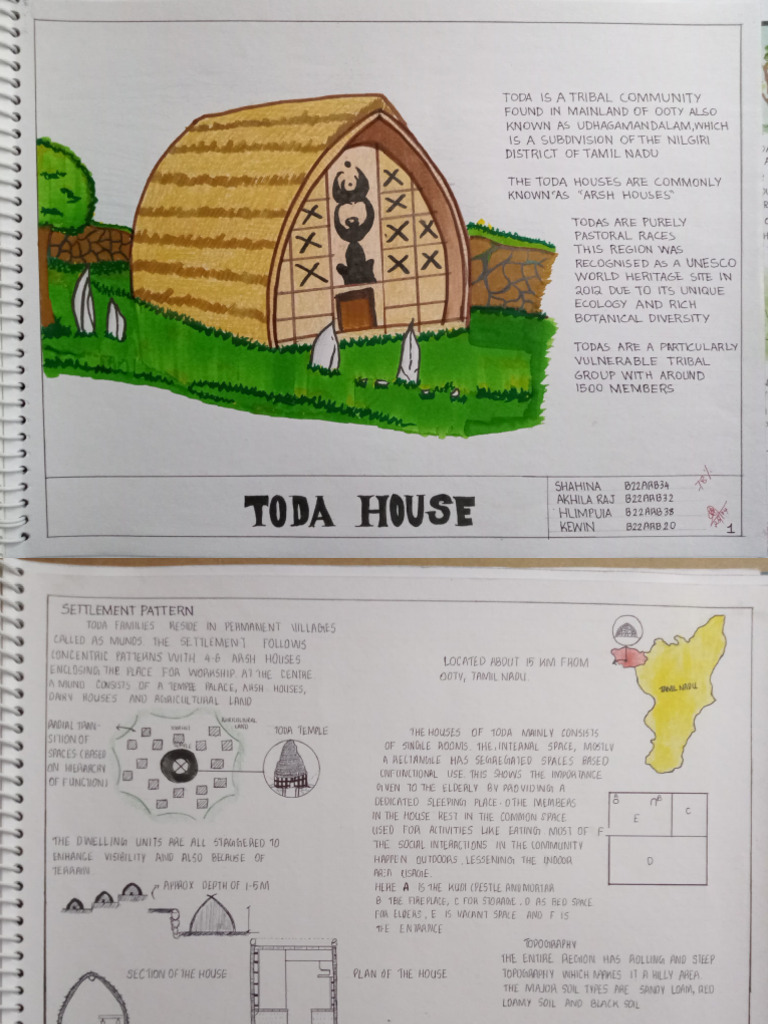 TODA IS A TRIBAL COMMUNITY
FOUND IN MAINLAND OF OOTY ALSO
KNOWN AS UDHAGAMANDALAM, WHICH
IS A SUBDIVISION OF THE NILGIRI
DISTRICT OF TAMIL NADU
THE TODA HOUSES ARE COMMONLY
KNOWN AS "ARSH HOUSES"
TODAS ARE PURELY
PASTORAL RACES
THIS REGION WAS
RECOGNISED AS A UNESCO
WORLD HERITAGE SITE IN
2012 DUE TO ITS UNIQUE
ECOLOGY AND RICH
BOTANICAL DIVERSITY
TODAS ARE A PARTICULARLY
VULNERABLE TRIBAL
GROUP WITH AROUND
1500 MEMBERS
TODA HOUSE
SHAHINA B22ARB34
AKHILA RAJ B22ARB32
HLIMPUIA B22ARB38
KEWIN B22ARB20
1
SETTLEMENT PATTERN
TODA FAMILIES RESIDE IN PERMANENT VILLAGES
CALLED AS MUNDS. THE SETTLEMENT FOLLOWS
CONCENTRIC PATTERNS WITH 4-6 ARSH HOUSES
ENCLOSING THE PLACE FOR WORKSHIP AT THE CENTRE
A MUND CONSISTS OF A TEMPLE PALACE, ARSH HOUSES,
DAIRY HOUSES AND AGRICULTURAL LAND
RADIAL TRAN-
SITION OF
SPACES (BASED
ON HIERARCHY
OF FUNCTION)
AGRICULTURAL
LAND
TODA TEMPLE
THE DWELLING UNITS ARE ALL STAGGERED TO
ENHANCE VISIBILITY AND ALSO BECAUSE OF
TERRAIN
APROX DEPTH OF 1-5M
SECTION OF THE HOUSE
PLAN OF THE HOUSE
LOCATED ABOUT 15 KM FROM
OOTY, TAMIL NADU.
TAMIL NADU
THE HOUSES OF TODA MAINLY CONSISTS
OF SINGLE ROOMS. THE INTEANAL SPACE, MOSTLY
A RECTANGLE HAS SEGREGATED SPACES BASED
ONFUNCTIONAL USE. THIS SHOWS THE IMPORTANCE
GIVEN TO THE ELDERLY BY PROVIDING A
DEDICATED SLEEPING PLACE. OTHE MEMBEAS
IN THE HOUSE REST IN THE COMMON SPACE
USED FOR ACTIVITIES LIKE EATING. MOST OF
THE SOCIAL INTERACTIONS IN THE COMMUNITY
HAPPEN OUTDOORS, LESSENING THE INDOOR
AREA USAGE.
HERE A IS THE KUDI (PESTLE AND MORTAR
B THE FIREPLACE, C FOR STORAGE, D AS BED SPACE
FOR ELDERS, E IS VACANT SPACE AND F IS
THE ENTRANCE
B
A
E
C
F
D
TOPOGRAPHY
THE ENTIRE REGION HAS ROLLING AND STEEP
TOPOGRAPHY WHICH MAKES IT A HILLY AREA.
THE MAJOR SOIL TYPES ARE SANDY LOAM, RED
LOAMY SOIL AND BLACK SOIL